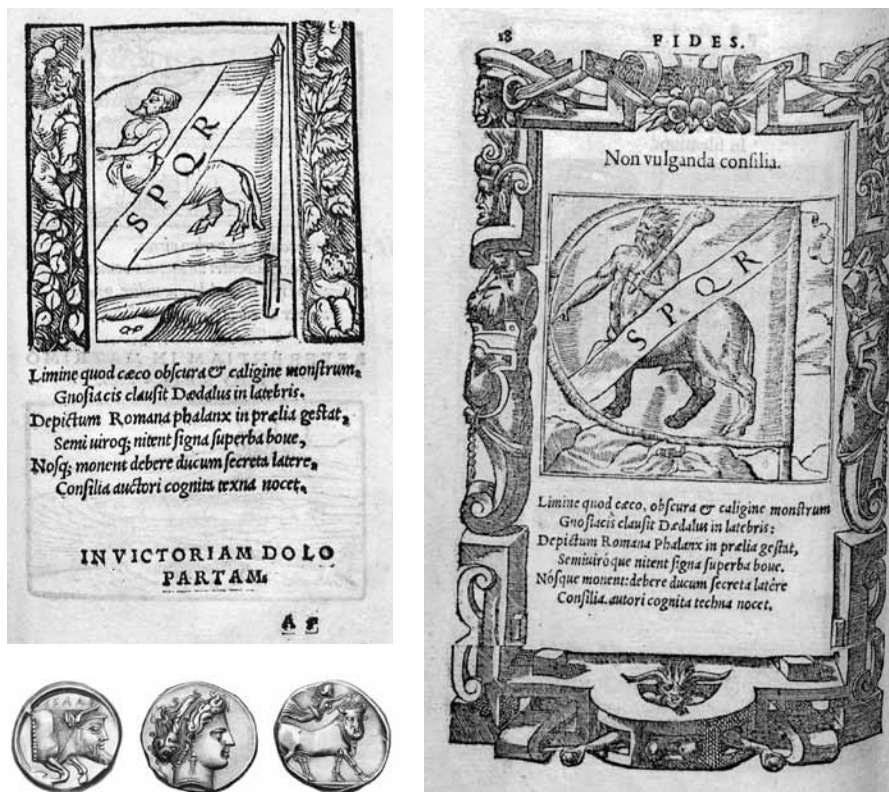 S P Q R
Limine quod cæco obscura & caligine monstrum,
Gnosiacis clausit Dædalus in latebris.
Depictum Romana phalanx in prælia gestat,
Semi uiroq; nitent signa superba boue,
Nosq; monent debere ducum secreta latere,
Consilia auctori cognita texna nocet,
IN VICTORIAM DOLO
PARTAM.
18
FIDES.
Non vulganda consilia.
S P Q R
Limine quod cæco, obscura & caligine monstrum
Gnosiacis clausit Dædalus in latebris:
Depictum Romana Phalanx in prælia gestat,
Semiuiróque nitent signa superba boue.
Nósque monent: debere ducum secreta latêre
Consilia. autori cognita techna nocet.